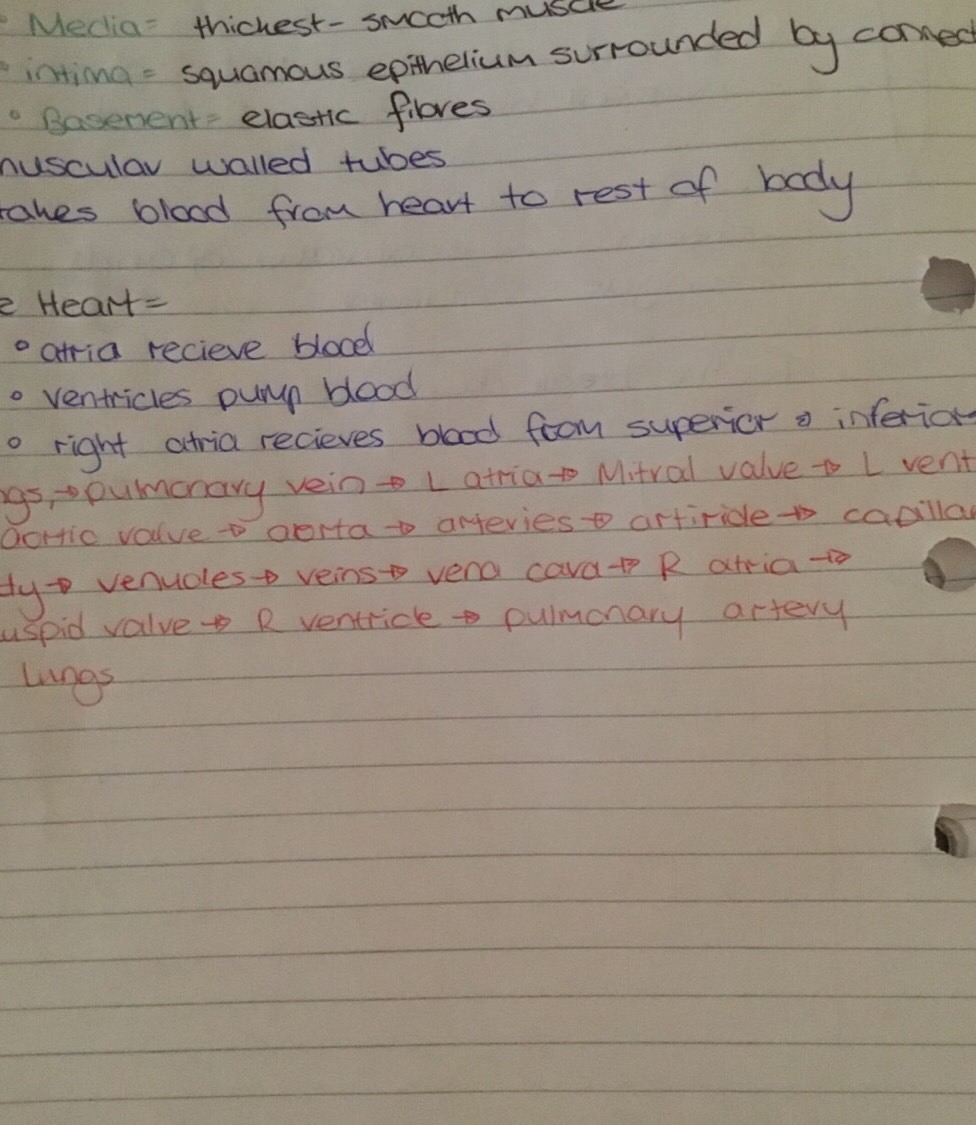 ° Media= thickest- smooth muscle
° intima = squamous epithelium surrounded by connect
° Basement= elastic fibres
muscular walled tubes
takes blood from heart to rest of body
e Heart=
° atria recieve blood
° ventricles pump blood
° right atria recieves blood from superior & inferior
gs,→pulmonary vein→ L atria→ Mitral valve→ L vent
aortic valve→ aorta→ arteries→ artiriole→ capilla
dy→ venuoles→ veins→ vena cava→ R atria→
uspid valve→ R ventricle→ pulmonary artery
lungs